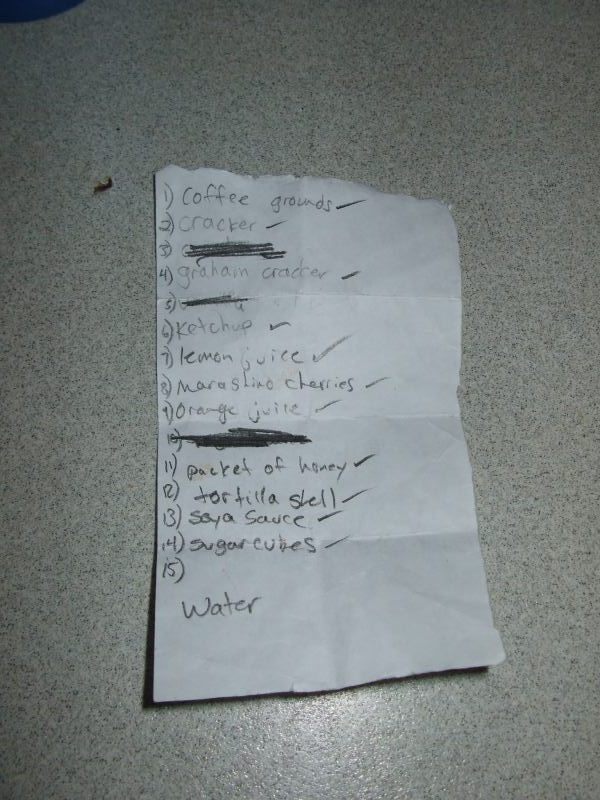 1) Coffee grounds ✓
2) Cracker ✓
3)
4) graham cracker ✓
5)
6) Ketchup ✓
7) lemon juice ✓
8) Marashino cherries ✓
9) Orange juice ✓
10)
11) packet of honey ✓
12) tortilla shell ✓
13) soya sauce ✓
14) sugar cubes ✓
15)
Water